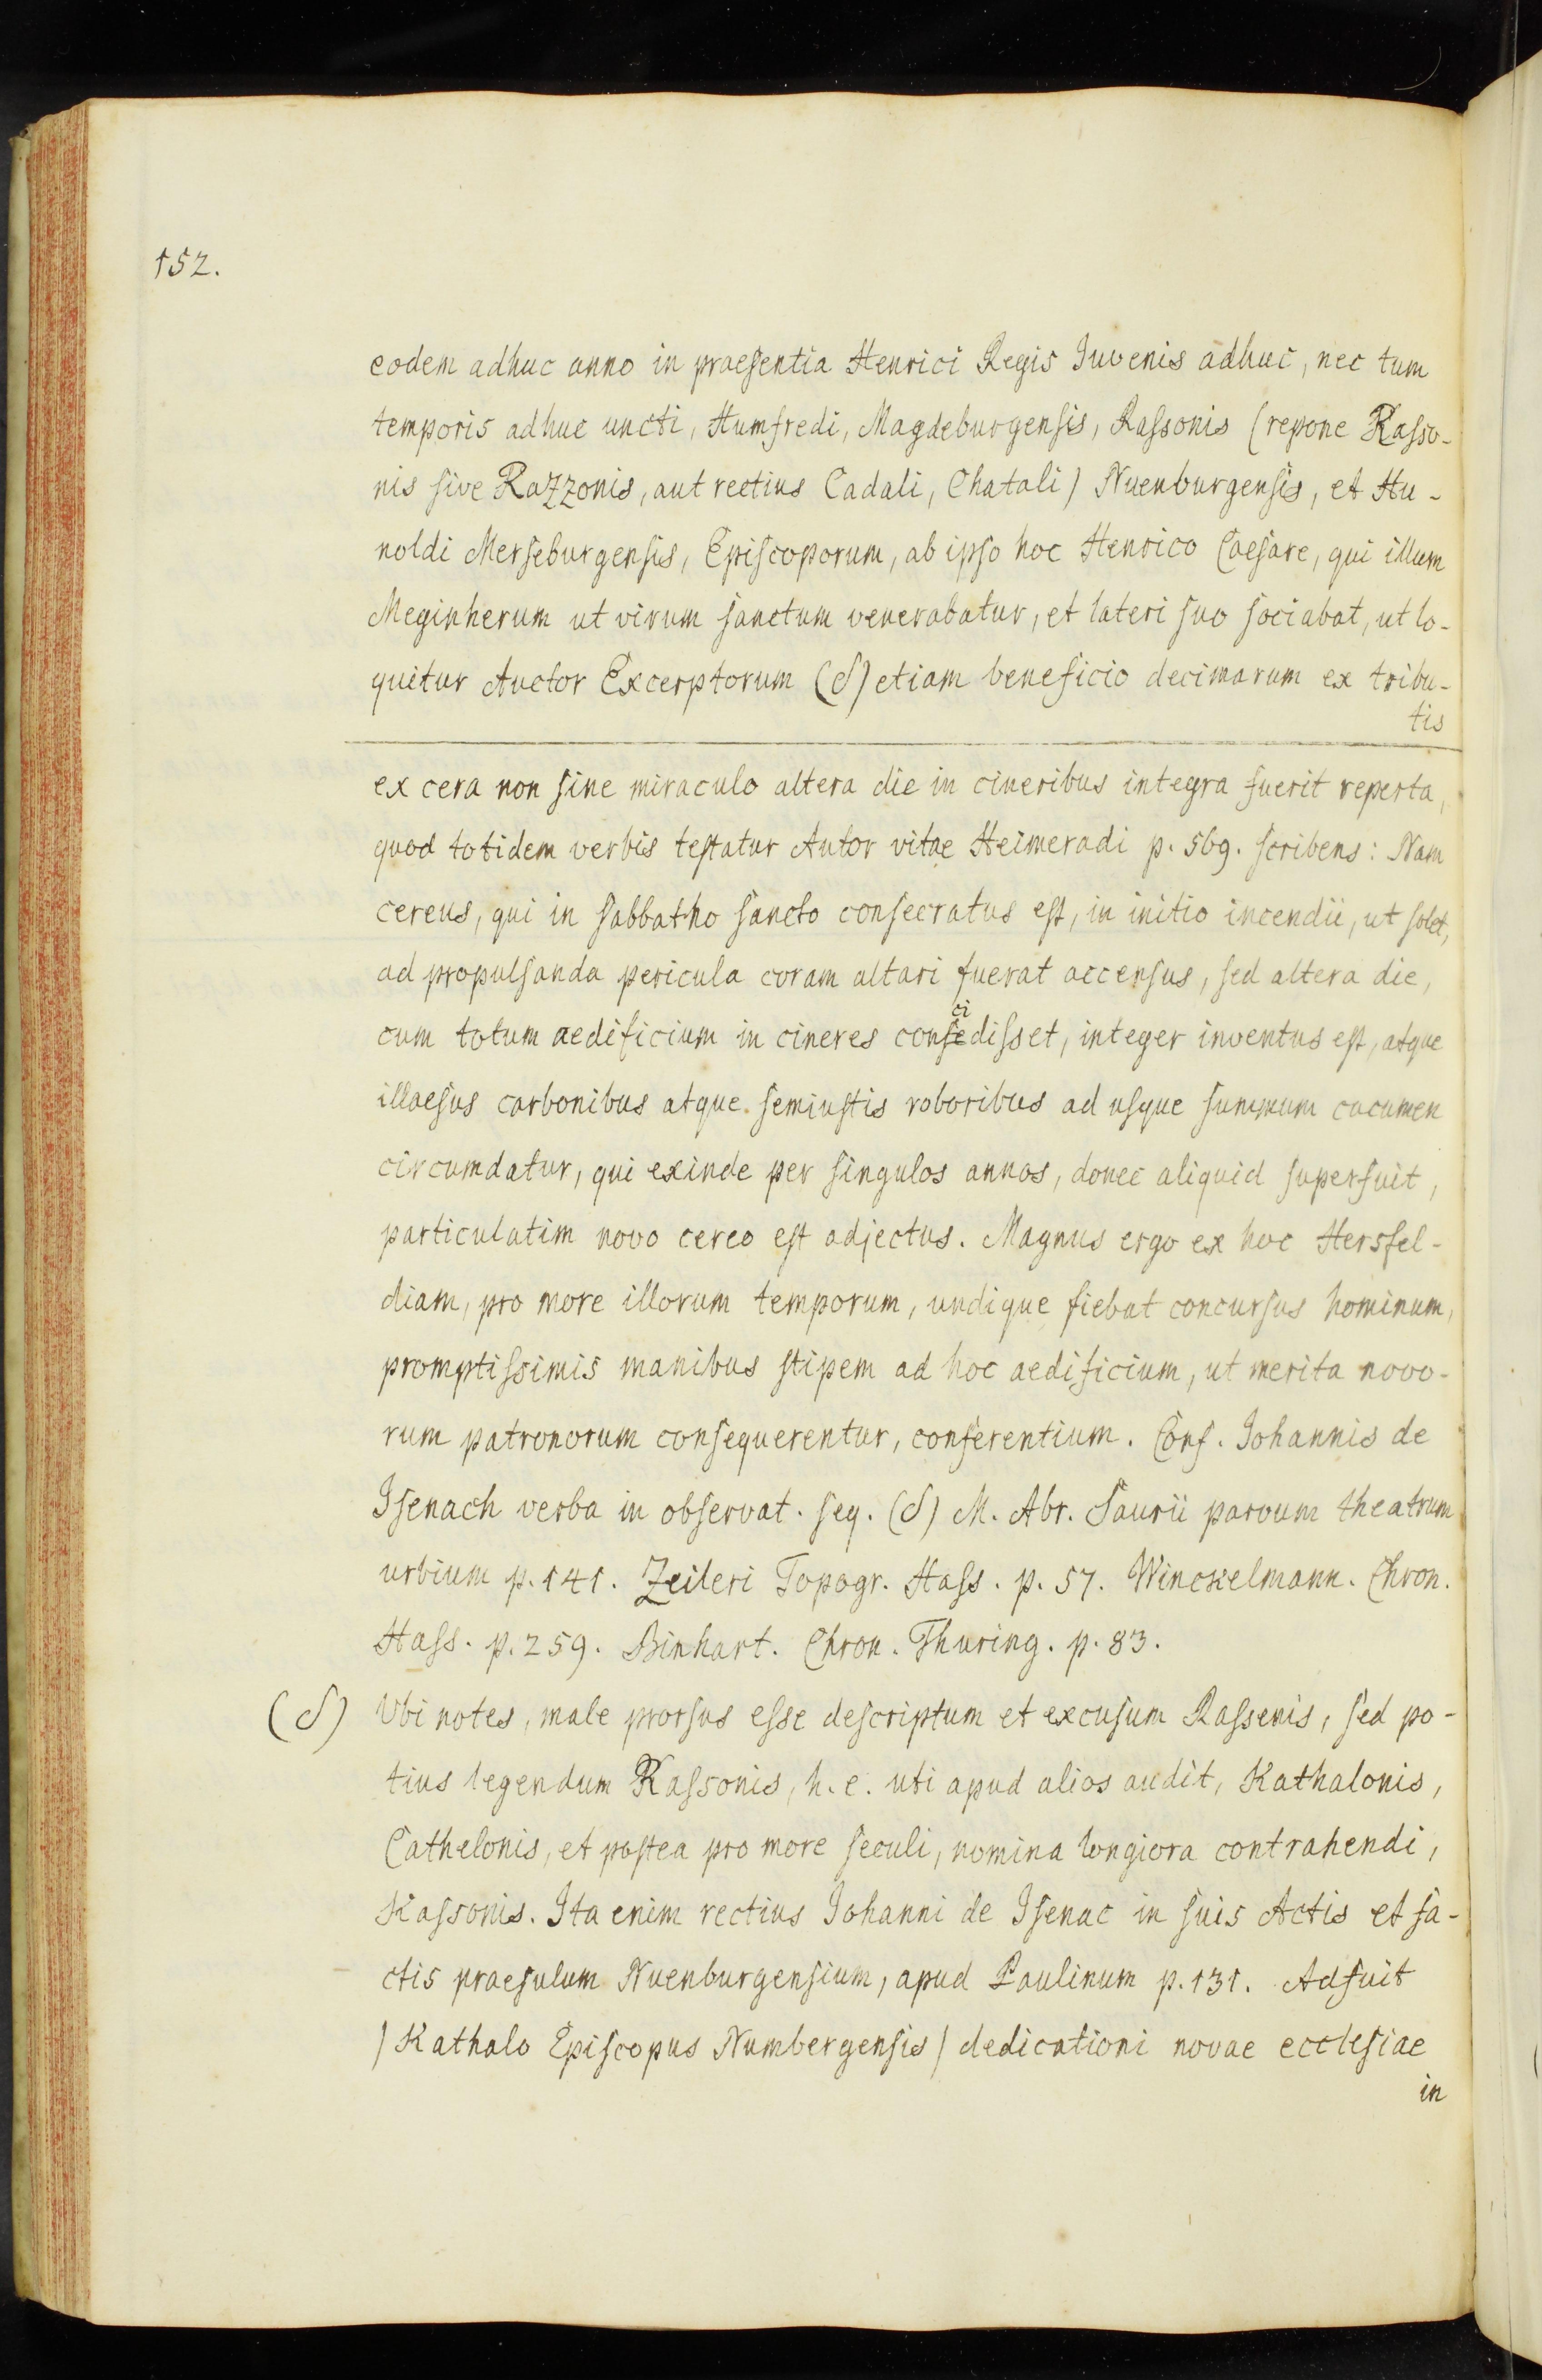 152.
eodem adhuc anno in praesentia Henrici Regis Iuvenis adhuc, nec tum
temporis adhuc uncti, Humfredi, Magdeburgensis, Rassonis (repone Kasso-
nis sive Kazzonis, aut rectius Cadali, Chatali) Nuenburgensis, et Hu-
noldi Merseburgensis, Episcoporum, ab ipso hoc Henrico Caesare, qui illum
Meginherum ut virum sanctum venerabatur, et lateri suo sociabat, ut lo-
quitur Auctor Excerptorum (δ) etiam beneficio decimarum ex tribu-
tis
ex cera non sine miraculo altera die in cineribus integra fuerit reperta,
quod totidem verbis testatur Autor vitae Heimeradi p. 569. scribens: Nam
cereus, qui in sabbatho sancto consecratus est, in initio incendii, ut solet,
ad propulsanda pericula coram altari fuerat accensus, sed altera die,
ci
cum totum aedificium in cineres consedisset, integer inventus est, atque
illaesus carbonibus atque semiustis roboribus ad usque summum cacumen
circumdatur, qui exinde per singulos annos, donec aliquid superfuit,
particulatim novo cereo est adjectus. Magnus ergo ex hoc Hersfel-
diam, pro more illorum temporum, undique fiebat concursus hominum,
promptissimis manibus stipem ad hoc aedificium, ut merita novo-
rum patronorum consequerentur, conferentium. Conf. Iohannis de
Isenach verba in observat. seq. (δ) M. Abr. Saurii parvum theatrum
urbium p. 141. Zeileri Topogr. Hass. p. 57. Winckelmann. Chron.
Hass. p. 259. Binhart. Chron. Thuring. p. 83.
(δ) Ubi notes, male prorsus esse descriptum et excusum Rassenis, sed po-
tius legendum Kassonis, h. e. uti apud alios audit, Kathalonis,
Cathelonis, et postea pro more seculi, nomina longiora contrahendi,
Kassonis. Ita enim rectius Iohanni de Isenac in suis Actis et fa-
ctis praesulum Nuenburgensium, apud Paulinum p. 131. Adfuit
/Kathalo Episcopus Numbergensis/ dedicationi novae ecclesiae
in